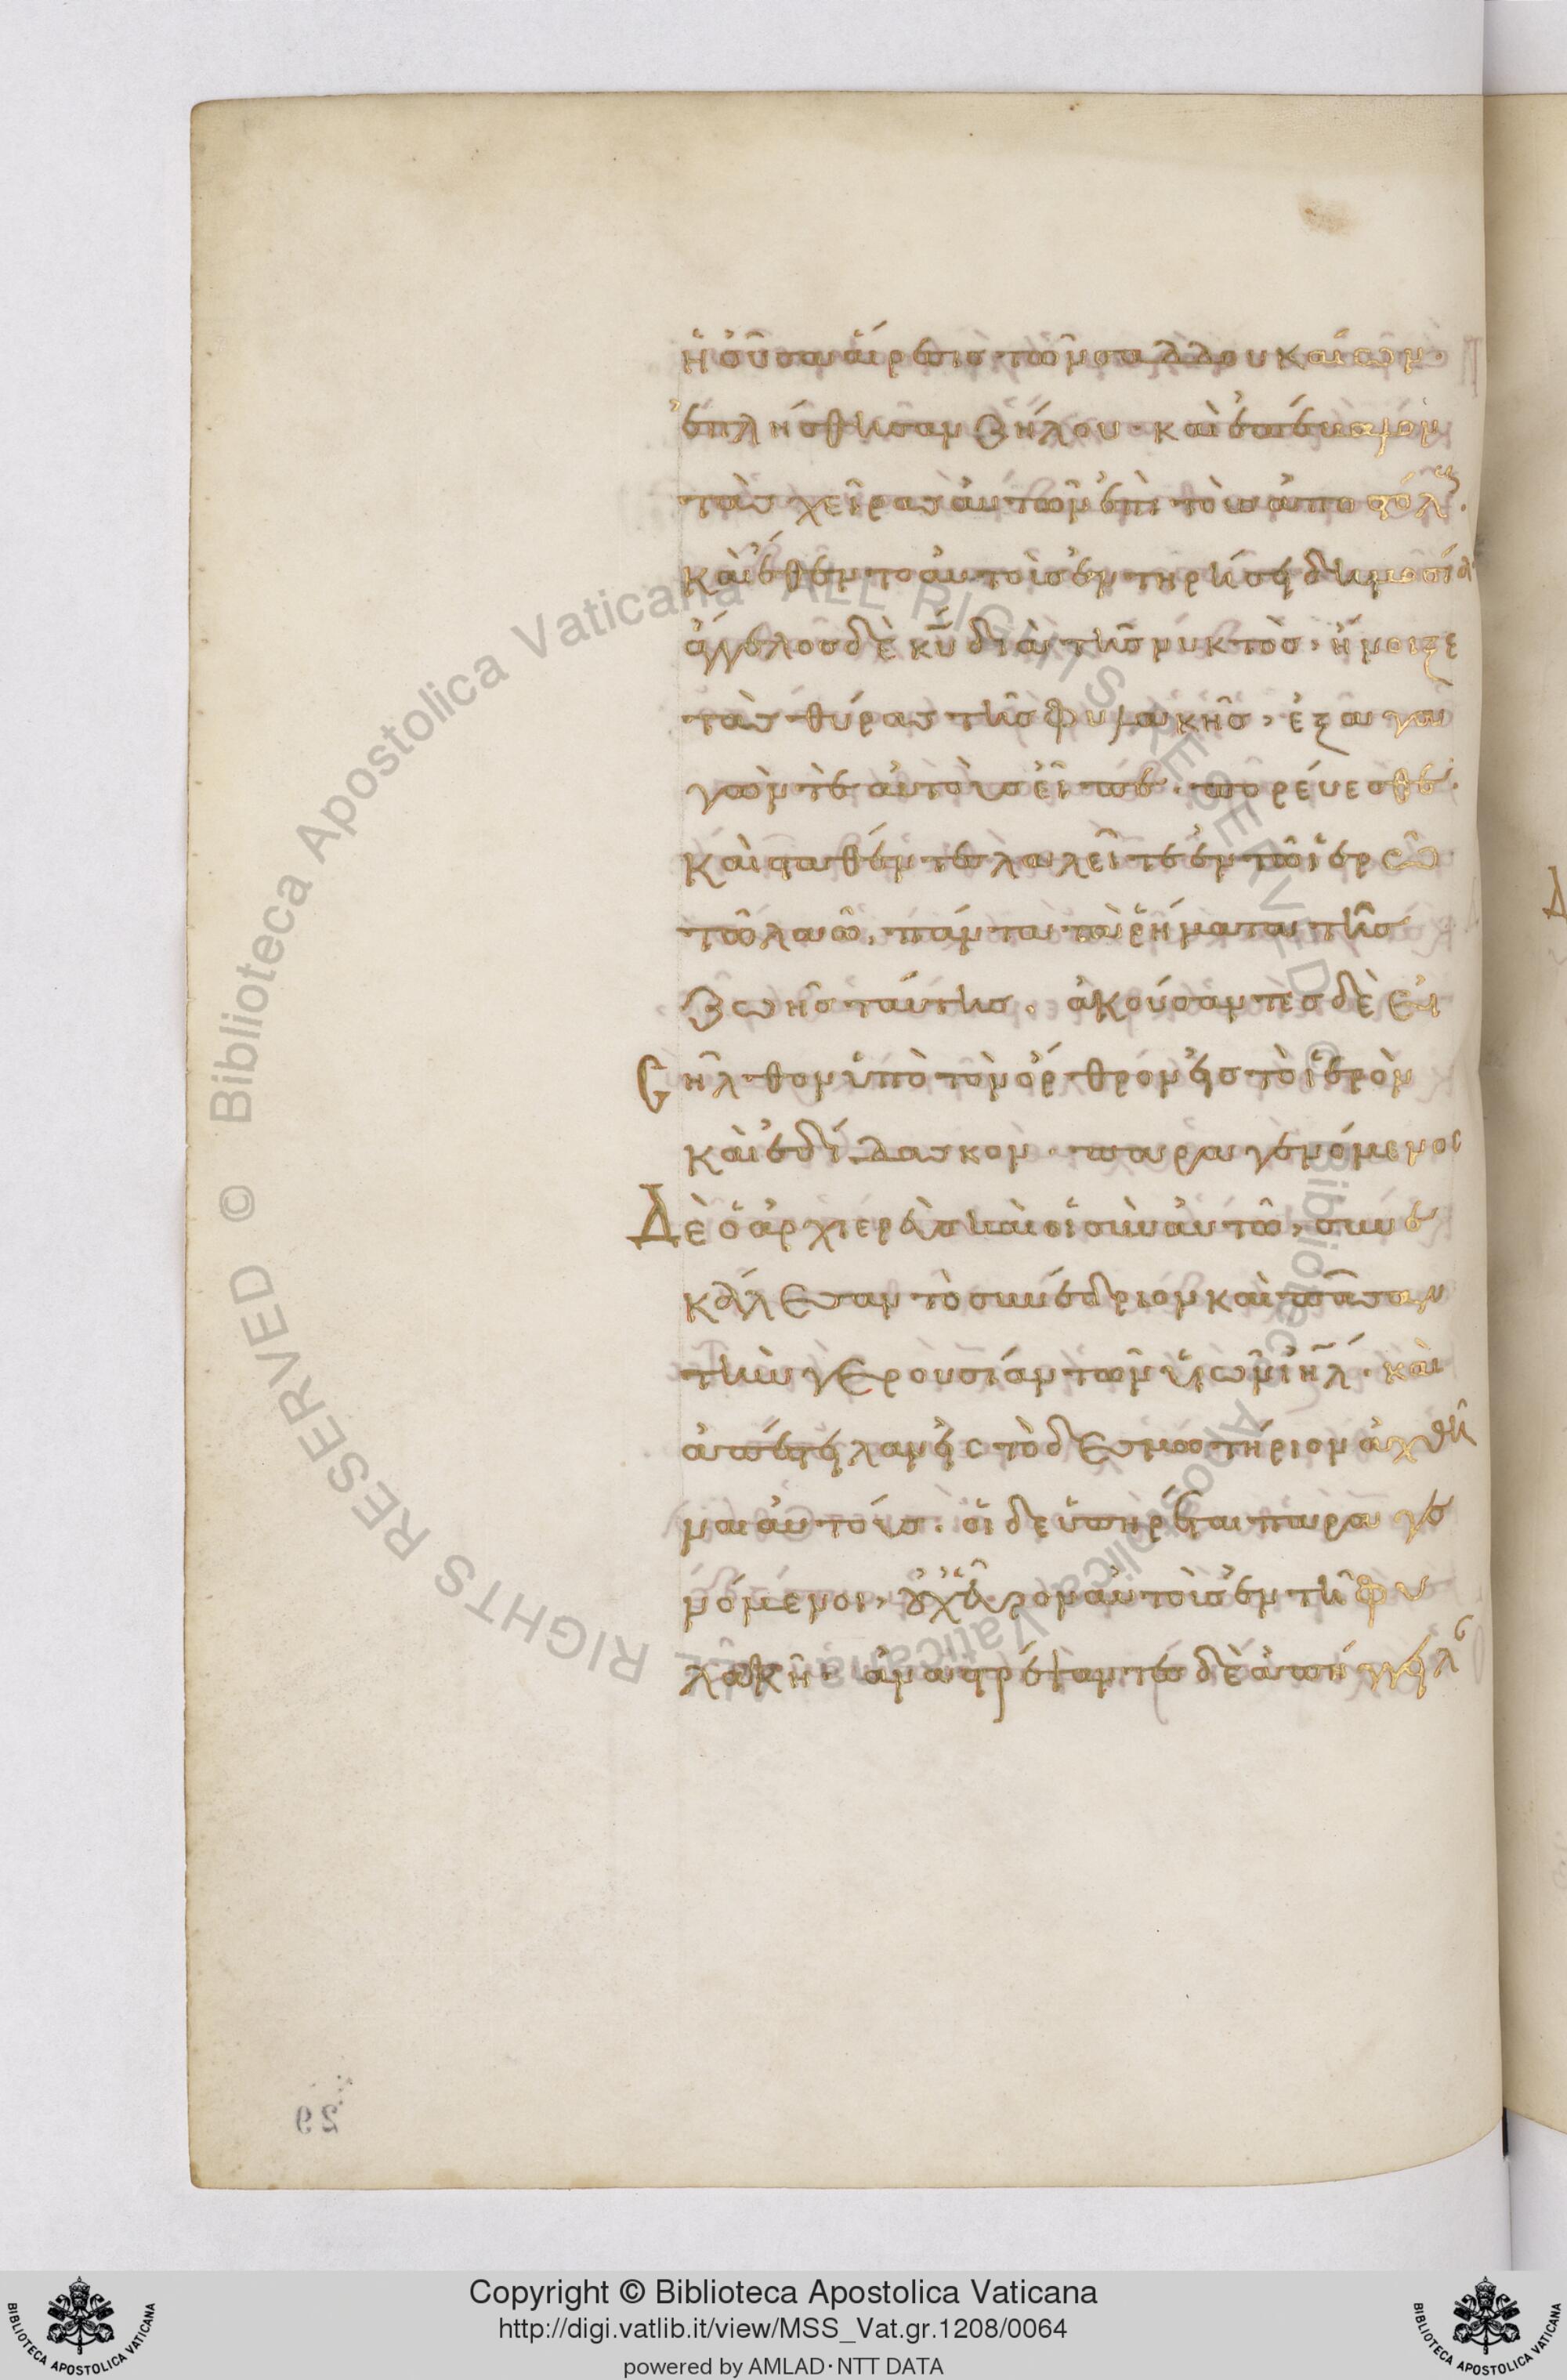 ἡ οὖσα αἵρεσις τῶν σαλλουκαίων·
ἐπλήσθησαν ζήλου· καὶ ἐπέβαλον
τὰς χεῖρας αὐτῶν ἐπὶ τοὺς ἀποστόλ
καὶ ἔθεντο αὐτοὺς ἐν τηρήσει δημοσία
ἄγγελος δὲ κυ διὰ τῆς νυκτὸς, ἤνοιξε
τὰς θύρας τῆς φυλακῆς, ἐξαγα
γών τε αὐτοὺς εἶπε· πορεύεσθε·
καὶ σταθέντες λαλεῖτε ἐν τῶ ἱερῶ
τῶ λαῶ, πάντα τὰ ῥήματα τῆς
ζωῆς ταύτης. ἀκούσαντες δὲ εἰ
σῆλθον ὑπὸ τὸν ὄρθρον εἰς τὸ ἱερὸν
καὶ ἐδίδασκον· παραγενόμενος
Δὲ ὁ ἀρχιερεὺς καὶ οἱ σὺν αὐτῶ, συνε
κάλεσαν τὸ συνέδριον καὶ πᾶσαν
τὴν γερουσίαν τῶν υἱῶν ιηλ· καὶ
ἀπέστειλαν εἰς τὸ δεσμωτήριον ἀχθῆ
ναι αὐτούς. οἱ δὲ ὑπηρέται παραγε
νόμενοι, οὐχ εὗρον αὐτοὺς ἐν τῆ φυ
λακῆ· ἀναστρέψαντες δὲ ἀπήγγειλ
29
Copyright © Biblioteca Apostolica Vaticana
http://digi.vatlib.it/view/MSS_Vat.gr.1208/0064
powered by AMLAD·NTT DATA
BIBLIOTECA APOSTOLICA VATICANA
BIBLIOTECA APOSTOLICA VATICANA
Biblioteca Apostolica Vaticana ALL RIGHTS RESERVED © Biblioteca Apostolica Vaticana ALL RIGHTS RESERVED ©